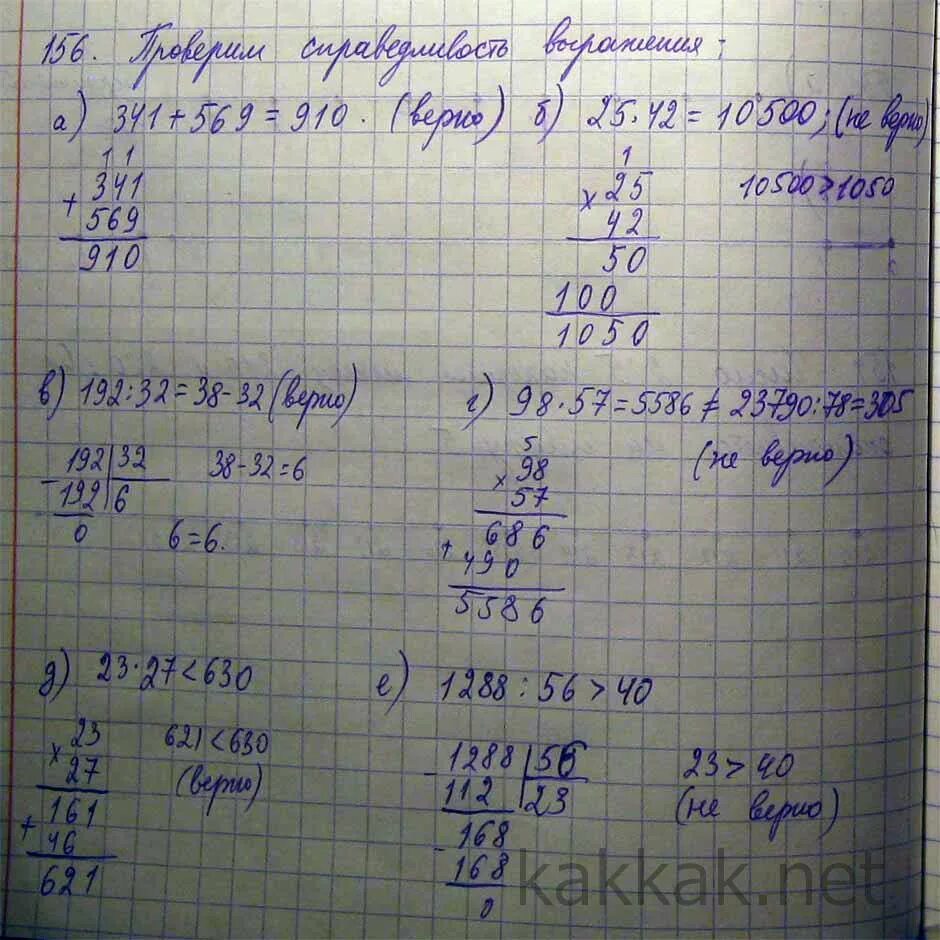 156. Проверим справедливость выражения:
а) 341 + 569 = 910. (верно)
1 1
+ 341
569
910
б) 25 · 42 = 10500; (не верно)
1
× 25
42
50
100
1050
10500 > 1050
в) 192 : 32 = 38 - 32 (верно)
- 192 | 32
192 | 6
0
38 - 32 = 6
6 = 6.
г) 98 · 57 = 5586 ≠ 23790 : 78 = 305
(не верно)
5
× 98
57
686
+ 490
5586
д) 23 · 27 < 630
× 23
27
161
+ 46
621
621 < 630
(верно)
е) 1288 : 56 > 40
- 1288 | 56
112 | 23
- 168
168
0
23 > 40
(не верно)
kakkak.net